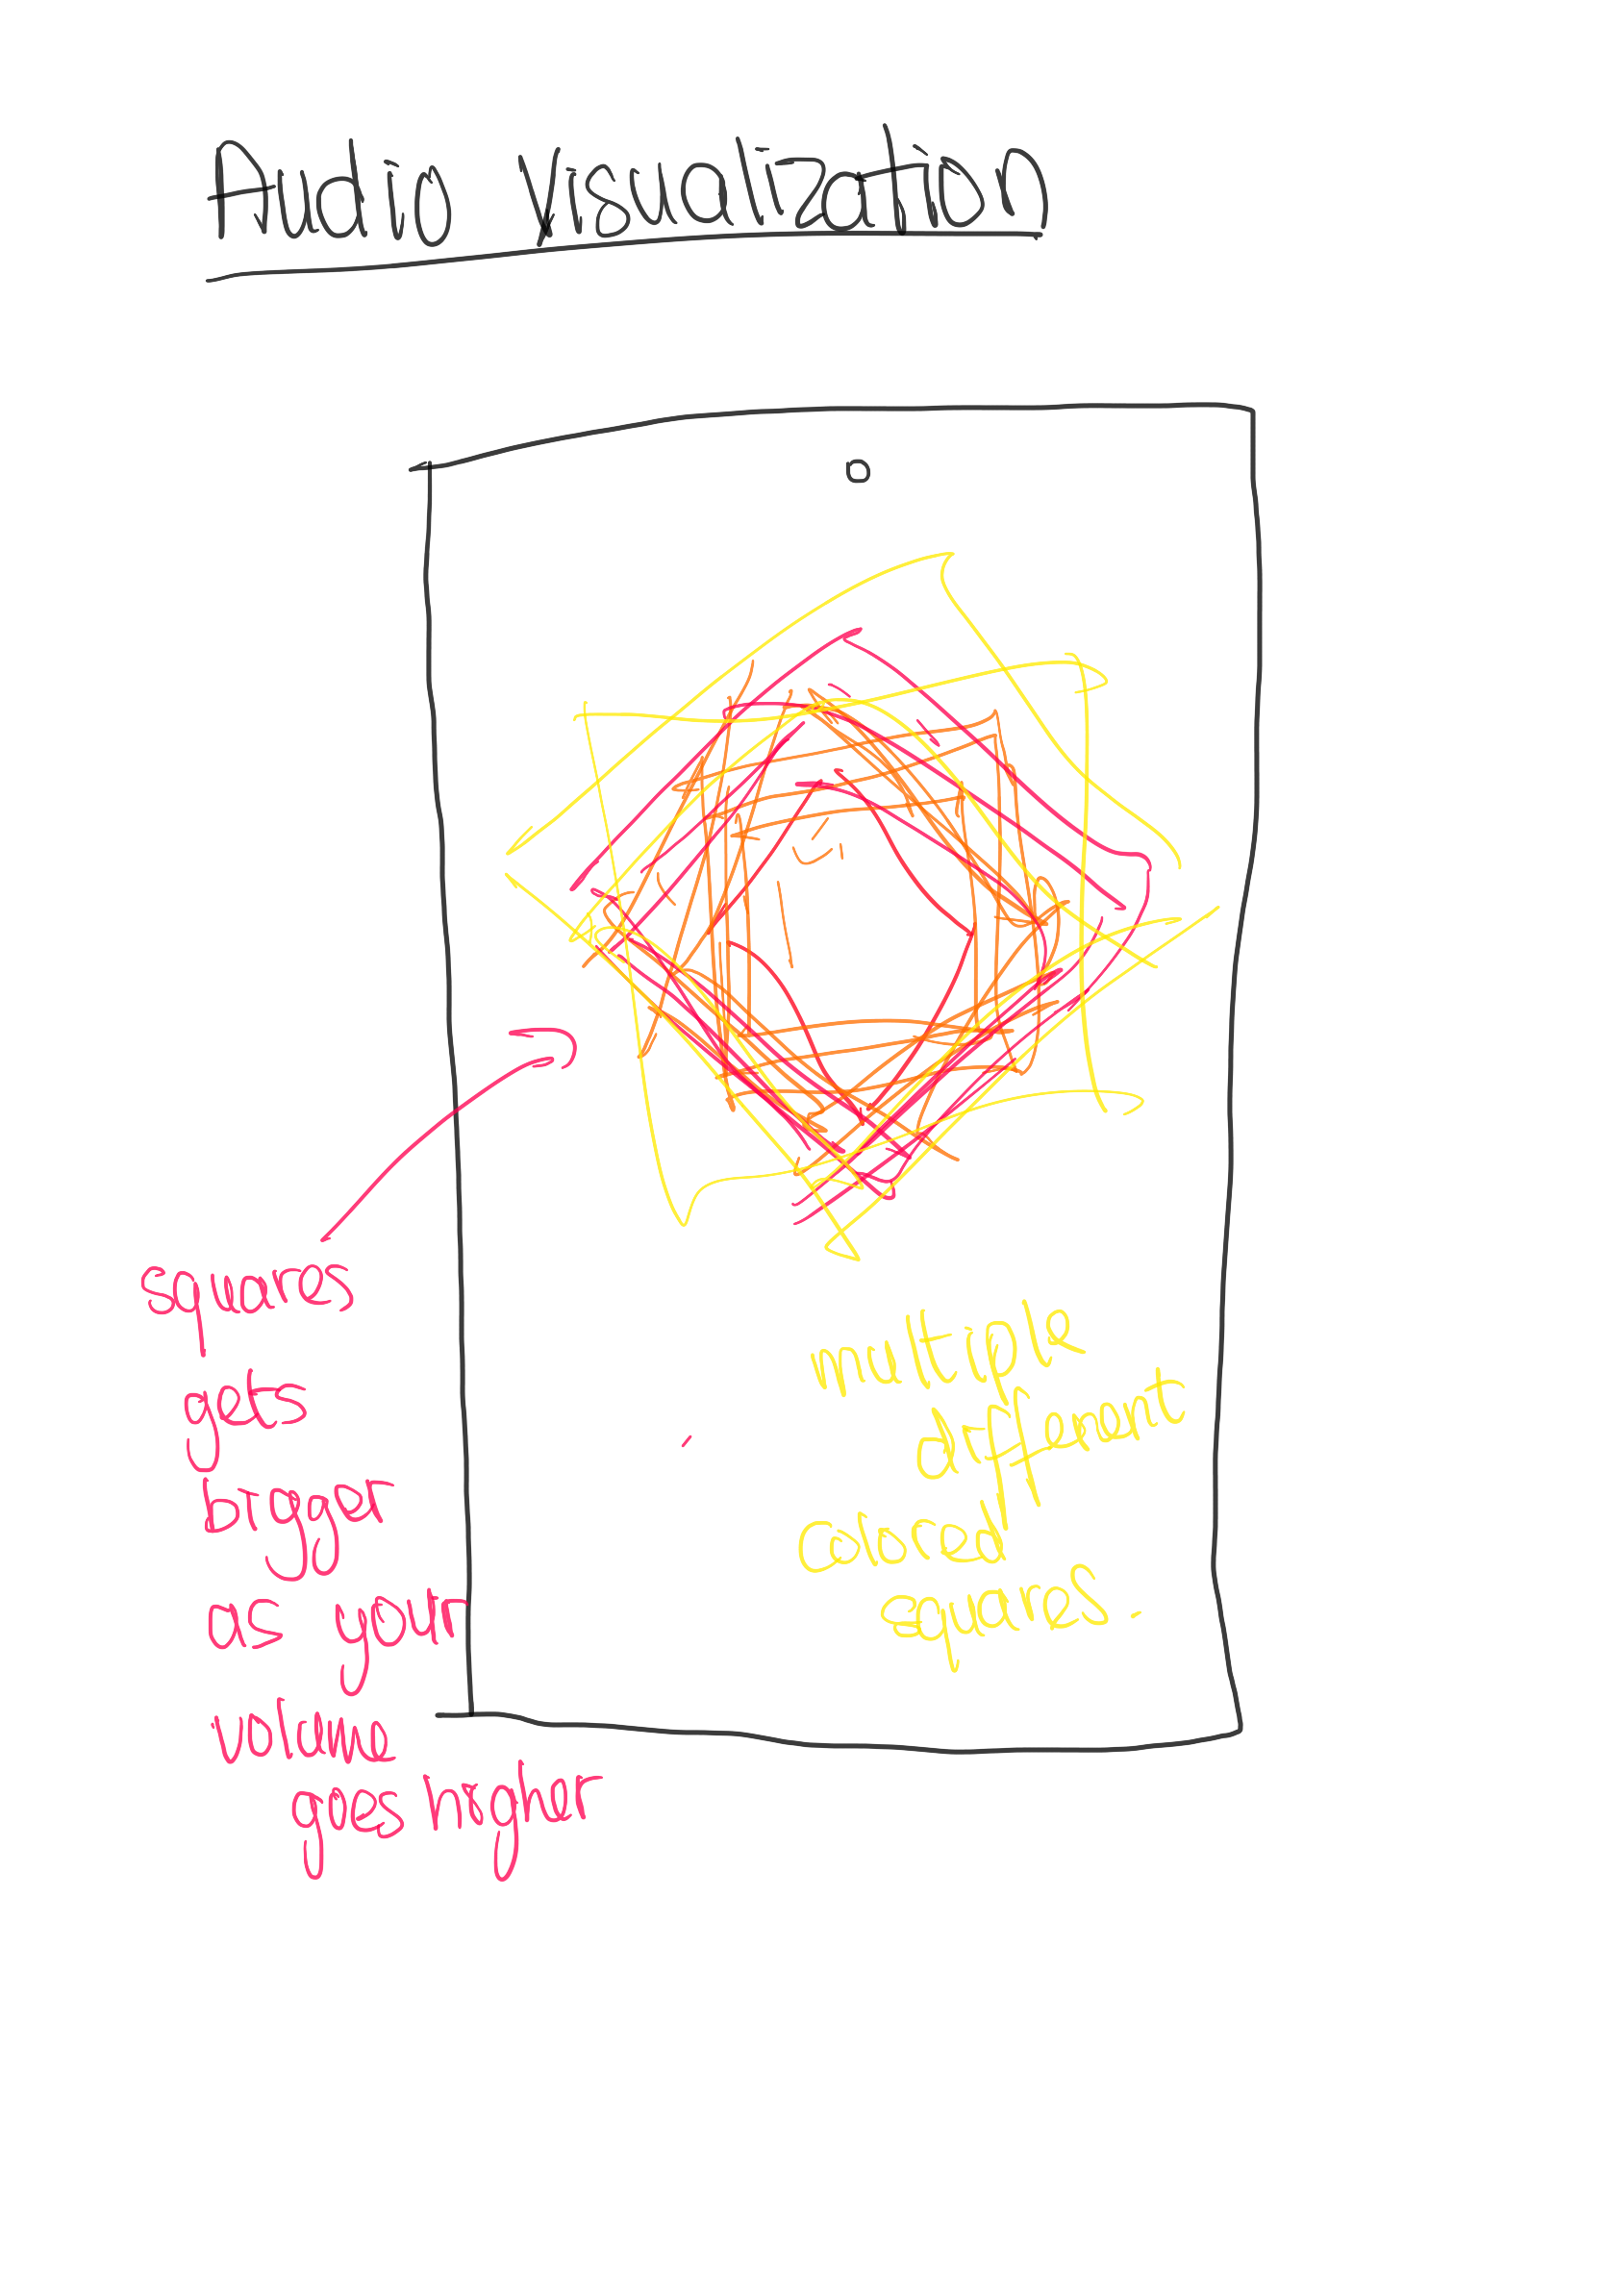 Audio Visualization
squares
gets
bigger
as your
volume
goes higher
multiple
different
colored
squares.